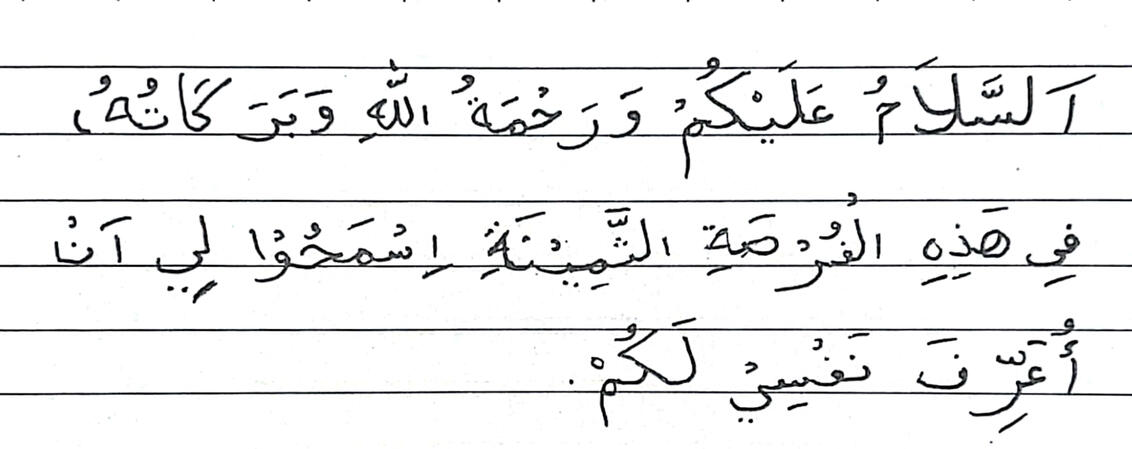 اَلسَّلاَمُ عَلَيْكُمْ وَرَحْمَةُ اللّٰهِ وَبَرَكَاتُهُ،
فِي هَذِهِ الْفُرْصَةِ الثَّمِيْنَةِ اِسْمَحُوْا لِي اَنْ
أُعَرِّفَ نَفْسِيْ لَكُمْ.